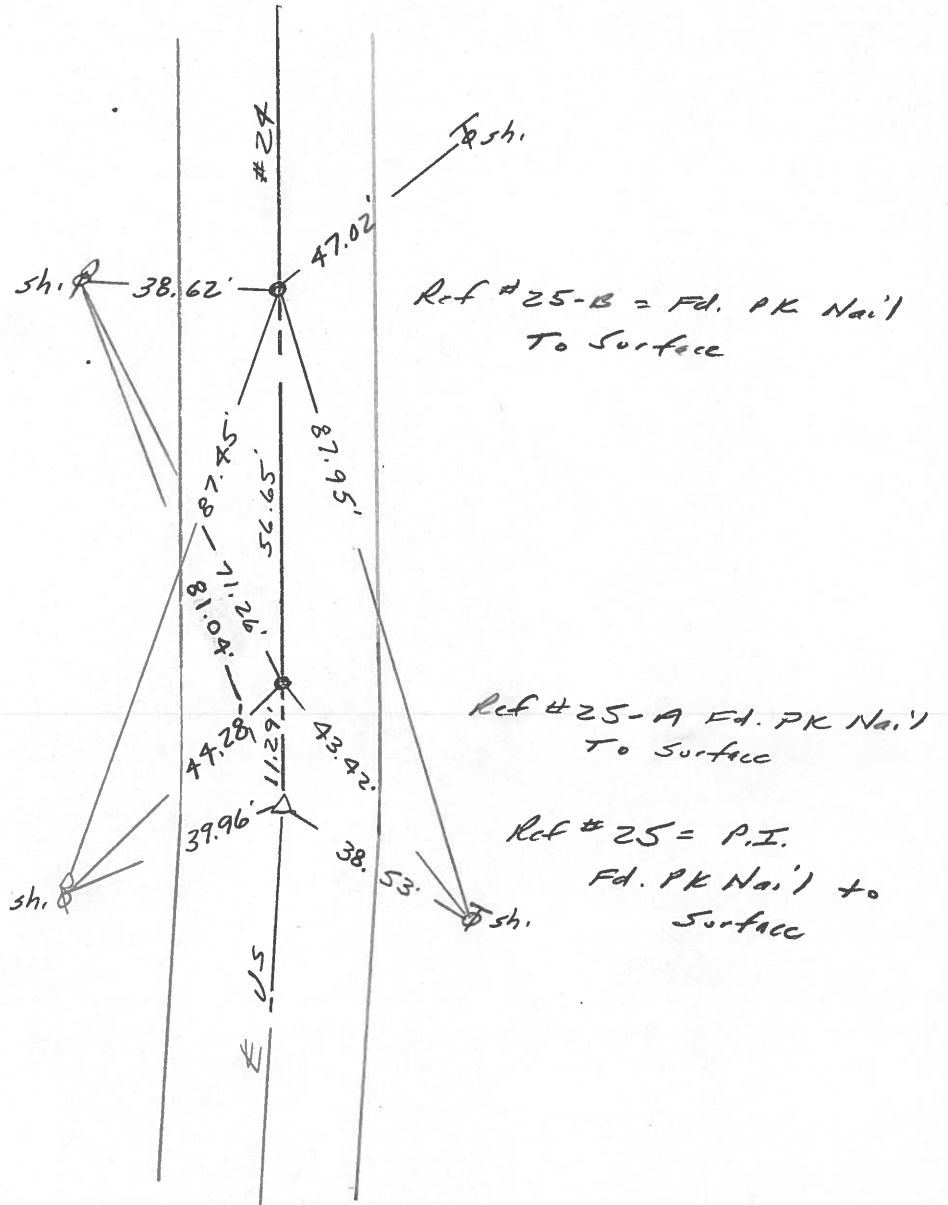 #24
sh.
47.02'
sh.
38.62'
Ref #25-B = Fd. PK Nail
To Surface
87.45'
56.65'
87.95'
71.26'
81.04'
Ref #25-A Fd. PK Nail
To Surface
44.28'
11.29'
43.42'
39.96'
38.53'
Ref #25 = P.I.
Fd. PK Nail to
Surface
sh.
sh.
℄ US